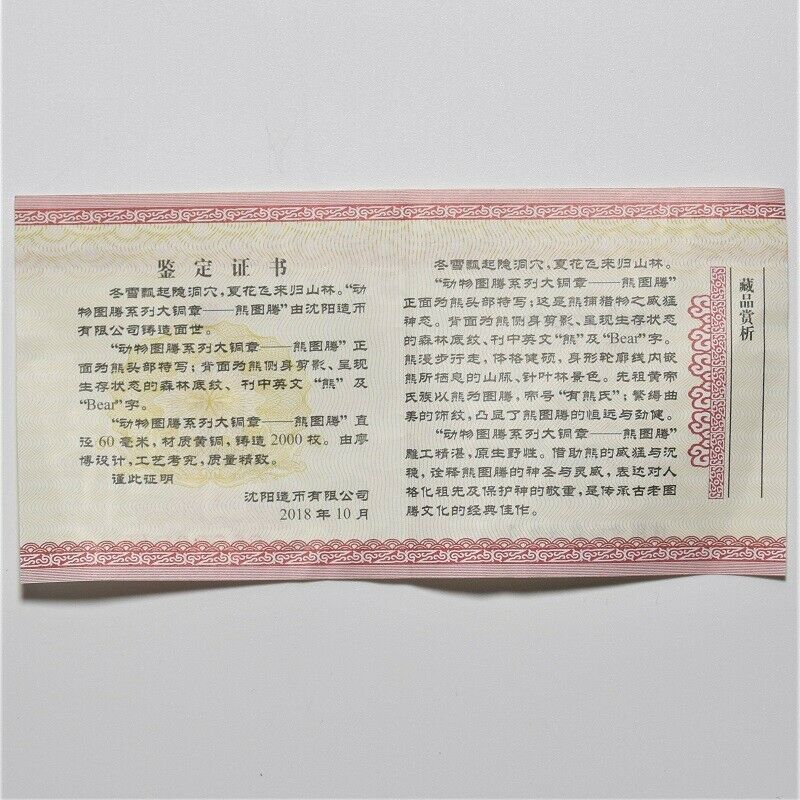 鉴定证书
冬雪飘起隐洞穴，夏花飞来归山林。“动
物图腾系列大铜章——熊图腾”由沈阳造币
有限公司铸造面世。
“动物图腾系列大铜章——熊图腾”正
面为熊头部特写；背面为熊侧身剪影、呈现
生存状态的森林底纹、刊中英文“熊”及
“Bear”字。
“动物图腾系列大铜章——熊图腾”直
径60毫米，材质黄铜，铸造2000枚。由廖
博设计，工艺考究，质量精致。
谨此证明
沈阳造币有限公司
2018年10月
藏品赏析
冬雪飘起隐洞穴，夏花飞来归山林。
“动物图腾系列大铜章——熊图腾”
正面为熊头部特写；这是熊捕猎物之威猛
神态。背面为熊侧身剪影、呈现生存状态
的森林底纹、刊中英文“熊”及“Bear”字。
熊漫步行走，体格健硕，身形轮廓线内嵌
熊所栖息的山脉、针叶林景色。先祖黄帝
氏族以熊为图腾，帝号“有熊氏”；繁缛曲
美的饰纹，凸显了熊图腾的恒远与劲健。
“动物图腾系列大铜章——熊图腾”
雕工精湛，原生野性。借助熊的威猛与沉
稳，诠释熊图腾的神圣与灵威，表达对人
格化祖先及保护神的敬重，是传承古老图
腾文化的经典佳作。